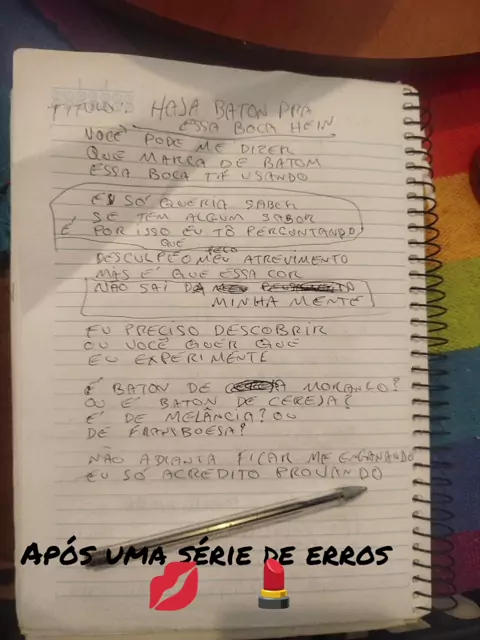 TITULO: HAJA BATON PRA
ESSA BOCA HEIN
VOCÊ PODE ME DIZER
QUE MARCA DE BATOM
ESSA BOCA TÁ USANDO
EU SÓ QUERIA SABER
SE TEM ALGUM SABOR
É POR ISSO EU TÔ PERGUNTANDO
QUE
DESCULPE O MEU ATREVIMENTO
PELO
MAS É QUE ESSA COR
NÃO SAI DA
MINHA MENTE
EU PRECISO DESCOBRIR
OU VOCÊ QUER QUE
EU EXPERIMENTE
É BATON DE MORANGO?
OU É BATON DE CEREJA?
É DE MELÂNCIA? OU
DE FRAMBOESA?
NÃO ADIANTA FICAR ME ENGANANDO
EU SÓ ACREDITO PROVANDO
APÓS UMA SÉRIE DE ERROS